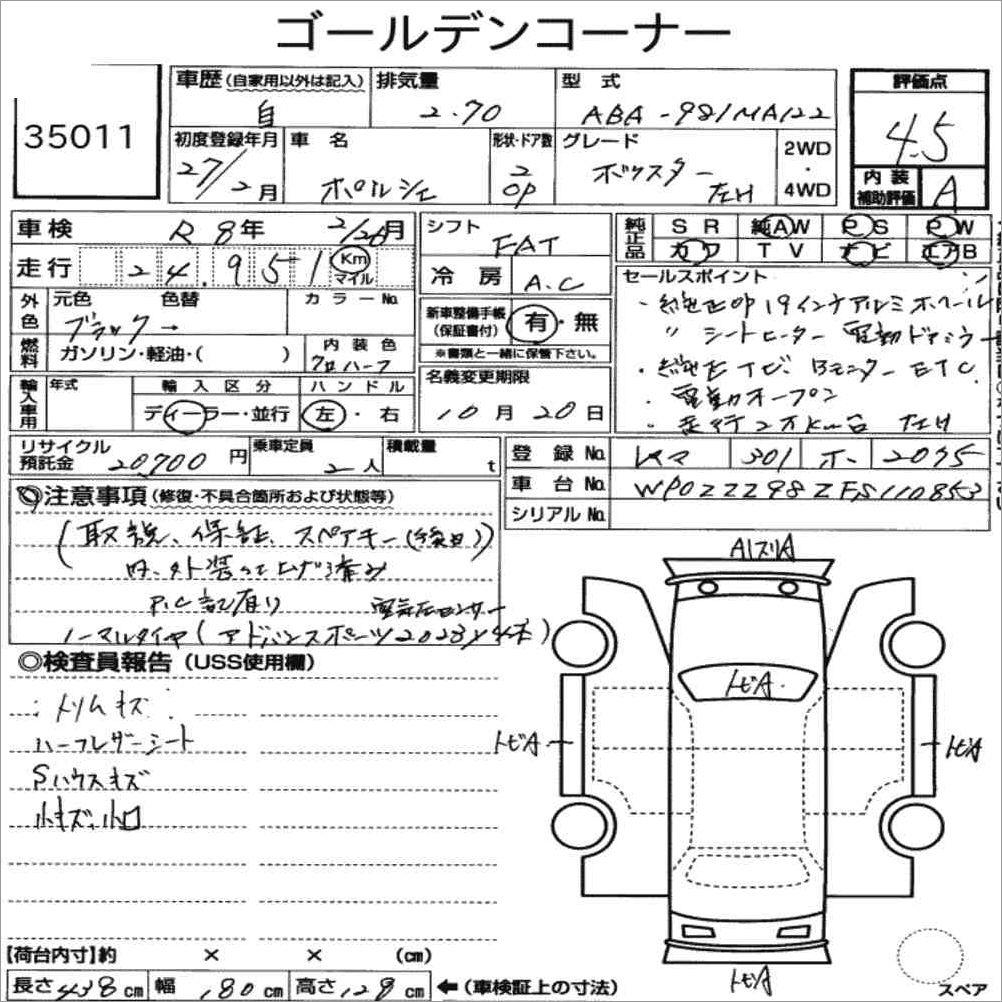 ゴールデンコーナー
35011
車歴 (自家用以外は記入) 自
排気量 2.70
型式 ABA-981MA122
評価点 4.5
初度登録年月 27/2月
車名 ポルシェ
形状・ドア数 2 OP
グレード ボクスター 左H
2WD・4WD
内装補助評価 A
車検 R8年 2/26月
シフト FAT
純正品 SR 純AW PS PW
カワ TV ナビ エアB
走行 24,951 Km マイル
冷房 A.C
セールスポイント
・純正OP 19インチアルミホイール
〃 シートヒーター 電動ドアミラー
・純正ナビ. Bモニター ETC
・電動オープン
・走行2万km台 左H
外色 元色 ブラック→ 色替 カラーNo.
新車整備手帳(保証書付) 有・無
※書類と一緒に保管下さい。
燃料 ガソリン・軽油・( )
内装色 クロハーフ
名義変更期限 10月20日
輸入車用 年式 輸入区分 ディーラー・並行
ハンドル 左・右
リサイクル預託金 20,700円
乗車定員 2人
積載量 t
登録No. 301 2075
車台No. WP0ZZZ98ZFS110853
シリアルNo.
◎注意事項 (修復・不具合箇所および状態等)
(取説、保証、スペアキー(後日))
内、外装仕上げ済み
P.C記有り
ノーマルタイヤ(アドバンスポーツ2023y4本)
◎検査員報告 (USS使用欄)
トリムキズ
ハーフレザーシート
Sハウスキズ
小キズ、小凹
AlスリA
トビA
トビA
トビA
トビA
【荷台内寸】約 × × (cm)
長さ438cm 幅180cm 高さ128cm ←(車検証上の寸法)
スペア